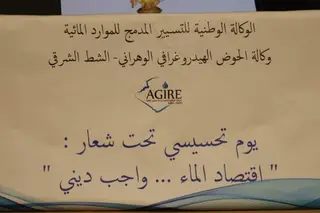 الوكالة الوطنية للتسيير المدمج للموارد المائية
وكالة الحوض الهيدروغرافي الوهراني- الشط الشرقي
AGIRE
يوم تحسيسي تحت شعار :
" اقتصاد الماء ... واجب ديني "